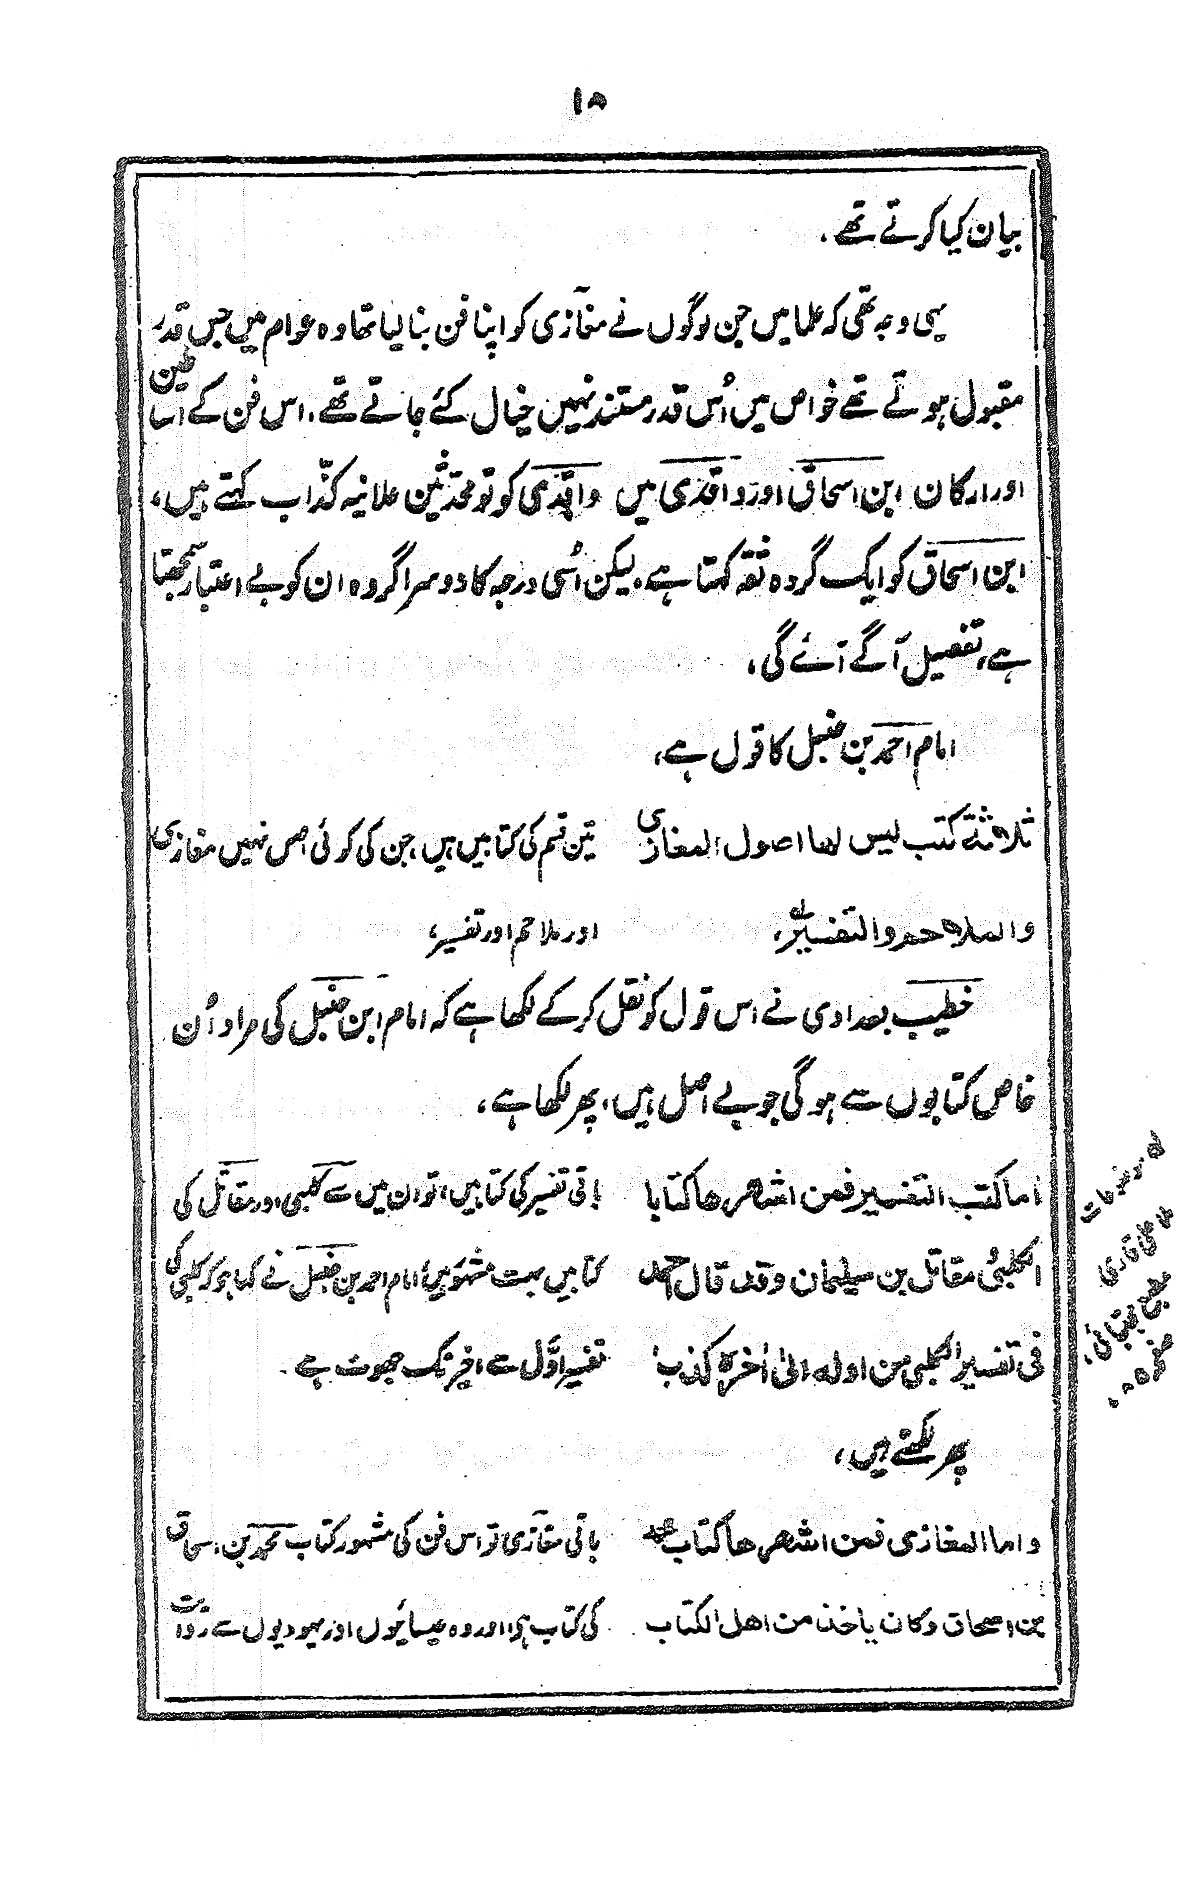 ۱۵
بیان کیا کرتے تھے۔
یہی وجہ تھی کہ علما میں جن لوگوں نے مغازی کو اپنا فن بنا لیا تھا وہ عوام میں جس قدر
مقبول ہوتے تھے خواص میں اُس قدر مستند نہیں خیال کئے جاتے تھے، اس فن کے اساطین
اور ارکان ابن اسحاق اور واقدی ہیں واقدی کو تو محدثین علانیہ کذّاب کہتے ہیں،
ابن اسحاق کو ایک گروہ ثقہ کہتا ہے، لیکن اُسی درجہ کا دوسرا گروہ ان کو بے اعتبار سمجھتا
ہے، تفصیل آگے آئے گی،
امام احمد بن حنبل کا قول ہے،
ثلاثة کتب لیس لها اصول المغازی تین قسم کی کتابیں ہیں، جن کی کوئی اصل نہیں مغازی
والملاحم والتفسیر، اور ملاحم اور تفسیر،
خطیب بغدادی نے اس قول کو نقل کر کے لکھا ہے کہ امام ابن حنبل کی مراد اُن
خاص کتابوں سے ہوگی جو بے اصل ہیں، پھر لکھا ہے،
اما کتب التفسیر فمن اشهرها کتابا باقی تفسیر کی کتابیں، تو ان میں سے کلبی اور مقاتل کی
الکلبی و مقاتل بن سلیمان وقد قال احمد کتابیں بہت مشہور ہیں، امام احمد بن حنبل نے کہا ہو کہ کلبی کی
فی تفسیر الکلبی من اوله الیٰ اٰخره کذب تفسیر اوّل سے اخیر تک جھوٹ ہے۔
پھر لکھتے ہیں،
واما المغازی فمن اشهرها کتاب محمد باقی مغازی تو اس فن کی مشہور کتاب محمد بن اسحاق
بن اسحاق وکان یاخذ من اهل الکتاب کی کتاب ہی، اور وہ عیسائیوں اور یہودیوں سے روایت
لہ موضوعات
ملا علی قاری
مطبع مجتبائی،
صفحہ